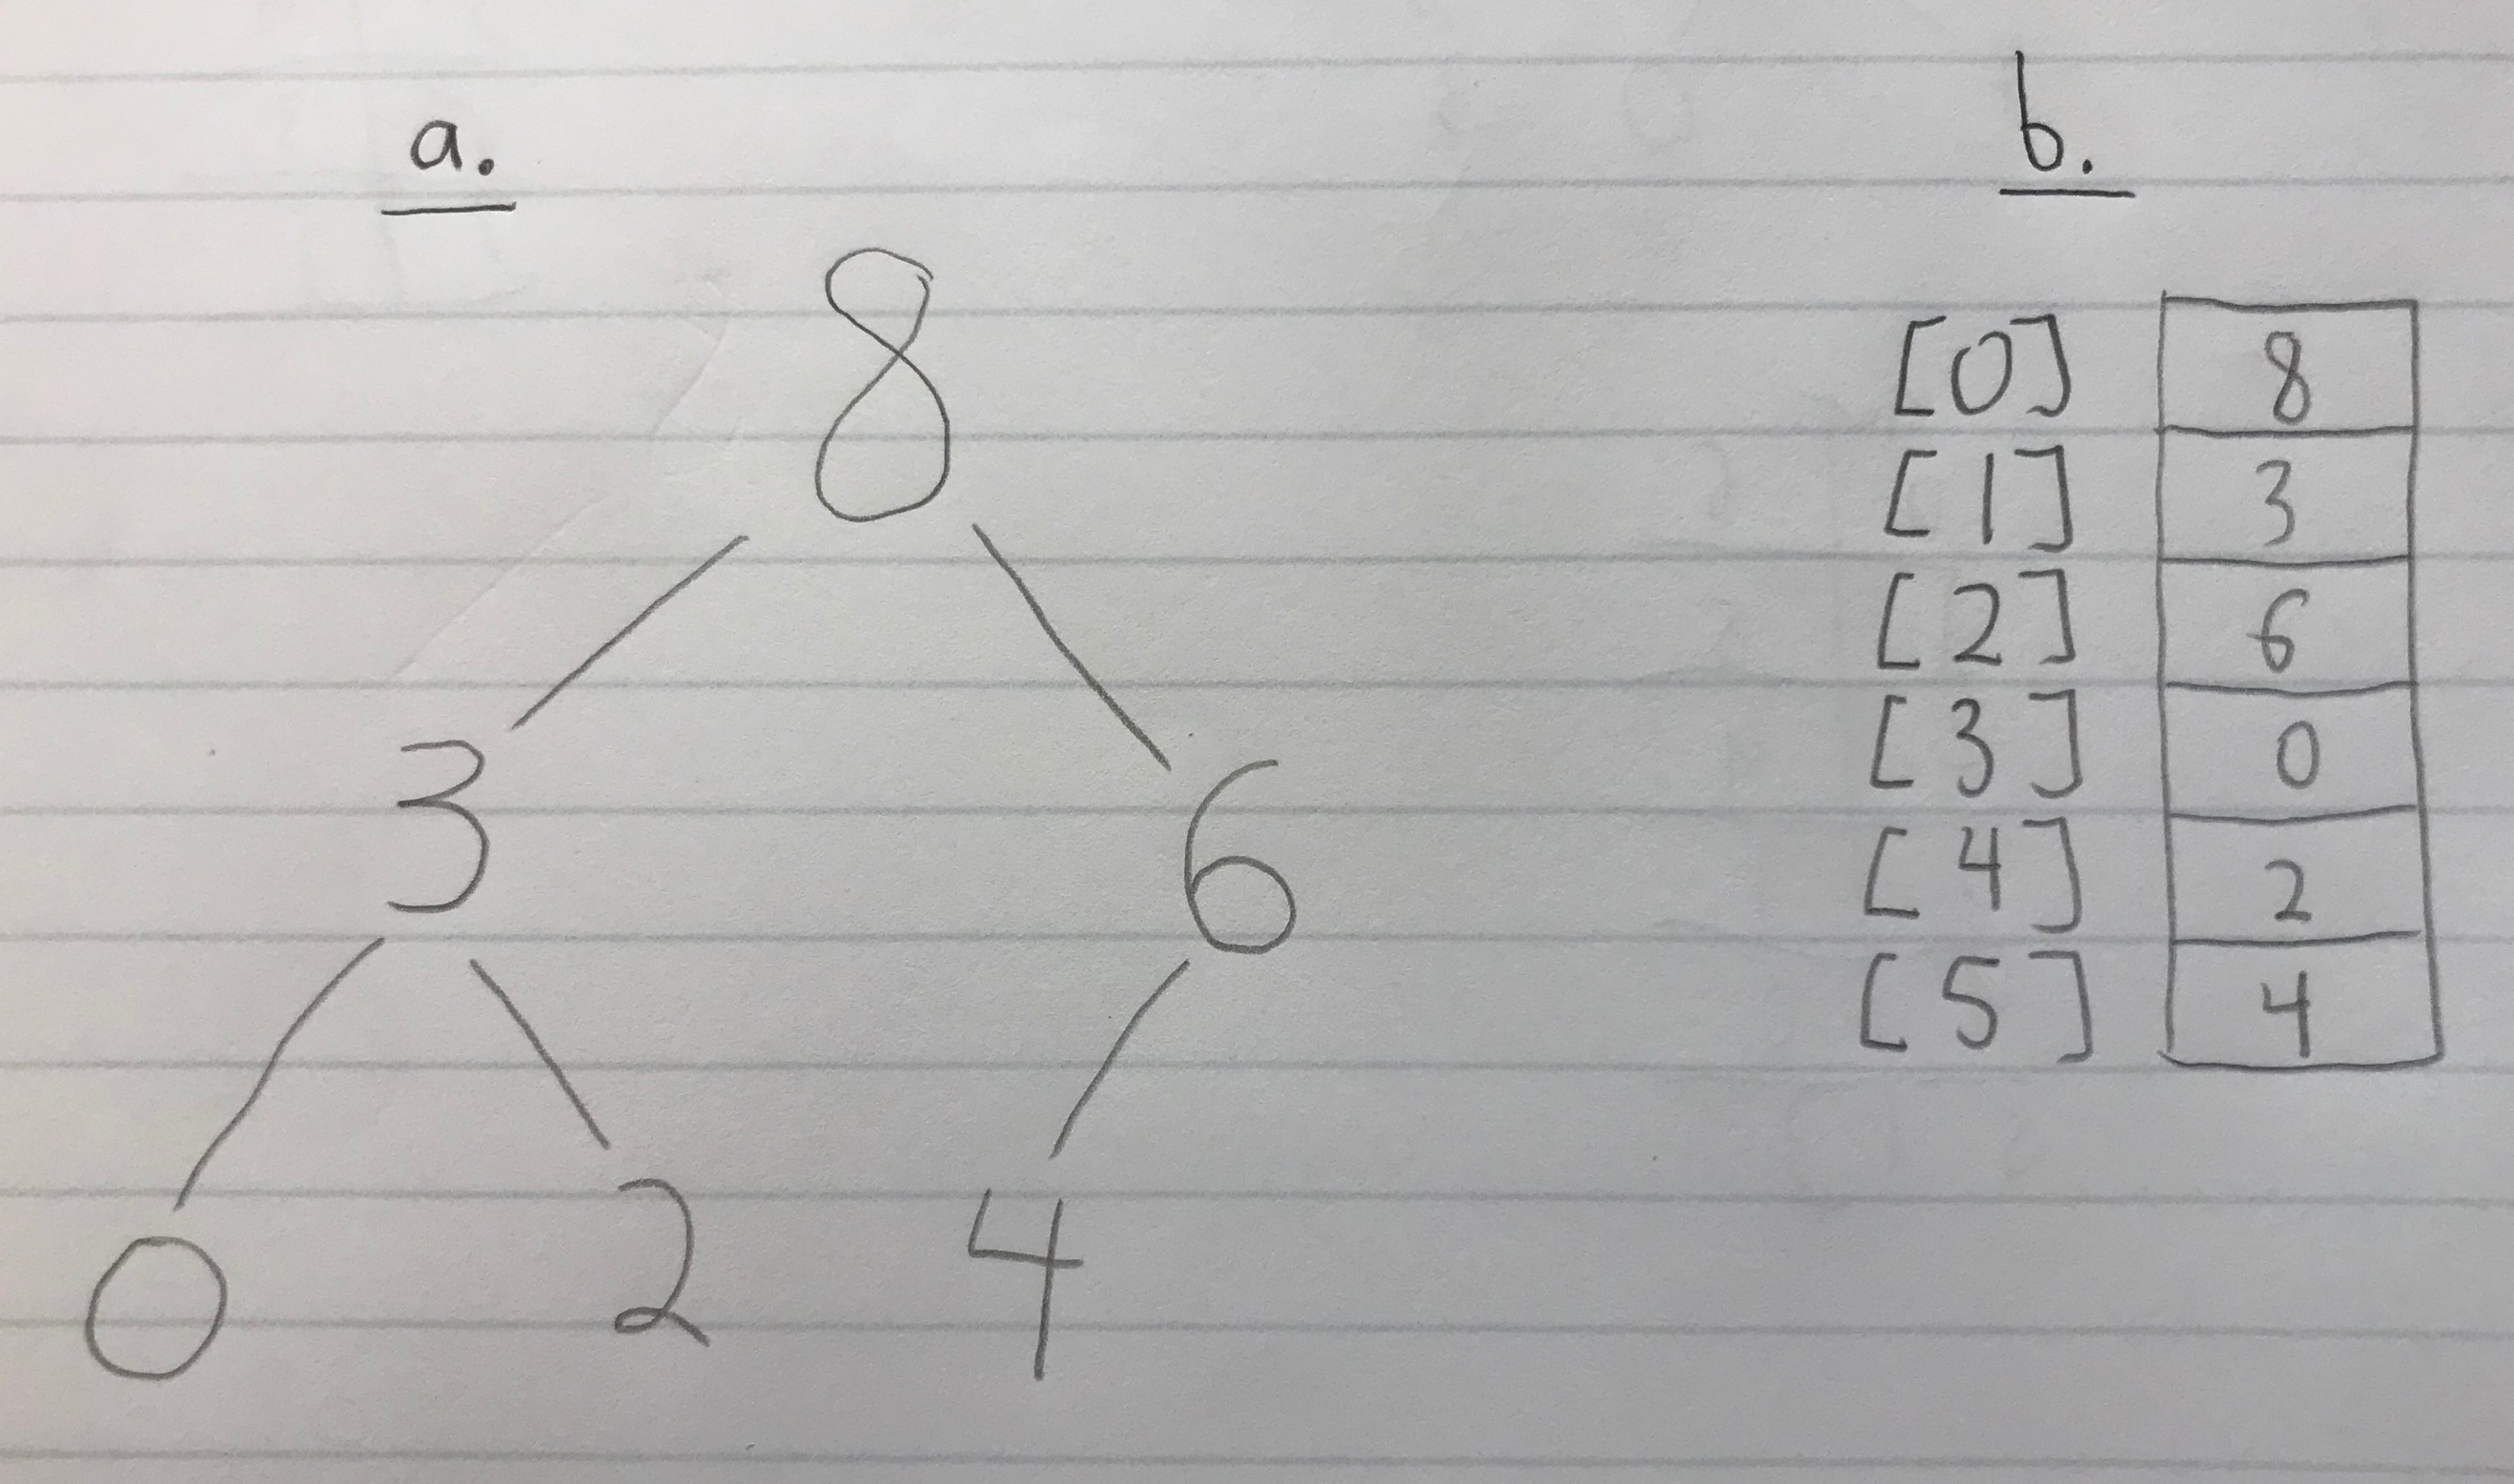 a.
8
3 6
0 2 4
b.
[0] 8
[1] 3
[2] 6
[3] 0
[4] 2
[5] 4